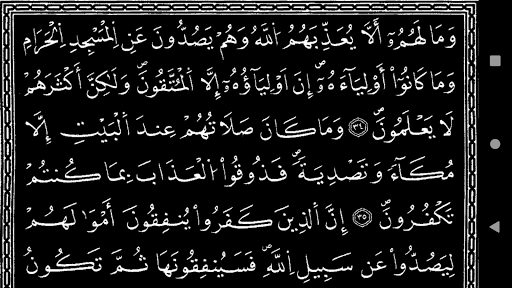 وَمَا لَهُمُۥٓ أَلَّا يُعَذِّبَهُمُ اُ۬للَّهُ وَهُمْ يَصُدُّونَ عَنِ اِ۬لْمَسْجِدِ اِ۬لْحَرَامِ
وَمَا كَانُوٓاْ أَوْلِيَآءَهُۥٓۖ إِنَ اَوْلِيَآؤُهُۥٓ إِلَّا اَ۬لْمُتَّقُونَۖ وَلَٰكِنَّ أَكْثَرَهُمْ
لَا يَعْلَمُونَۖ ٣٤ وَمَا كَانَ صَلَاتُهُمْ عِندَ اَ۬لْبَيْتِ إِلَّا
مُكَآءٗ وَتَصْدِيَةٗۖ فَذُوقُواْ اُ۬لْعَذَابَ بِمَا كُنتُمْ
تَكْفُرُونَۖ ٣٥ إِنَّ اَ۬لذِينَ كَفَرُواْ يُنفِقُونَ أَمْوَٰلَهُمْ
لِيَصُدُّواْ عَن سَبِيلِ اِ۬للَّهِۖ فَسَيُنفِقُونَهَا ثُمَّ تَكُونُ